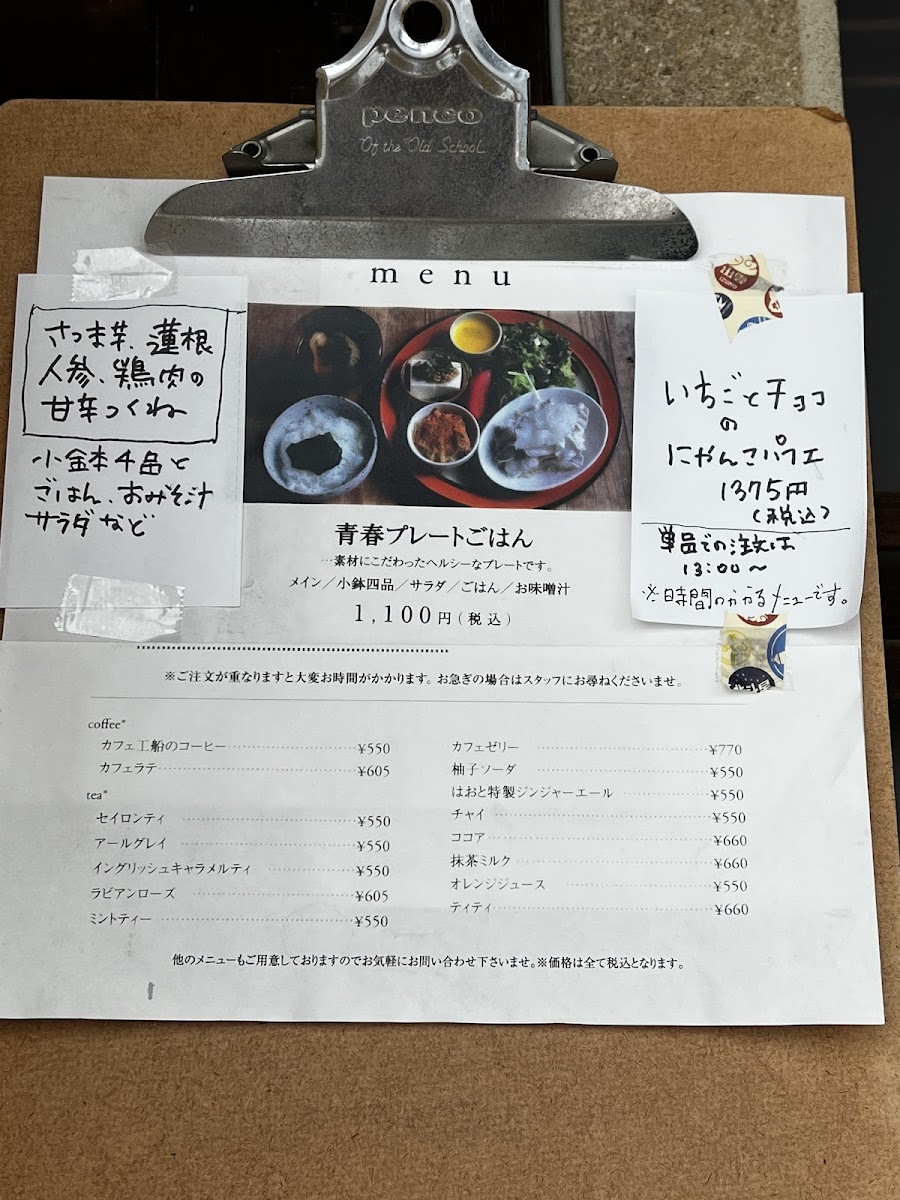 penco
Of the Old School
menu
さつま芋、蓮根
人参、鶏肉の
甘辛つくね
小鉢4品と
ごはん、おみそ汁
サラダなど
いちごとチョコ
の
にゃんこパフェ
1375円
(税込)
単品での注文は
13:00〜
※時間のかかるメニューです。
青春プレートごはん
…素材にこだわったヘルシーなプレートです。
メイン／小鉢四品／サラダ／ごはん／お味噌汁
1,100円(税込)
※ご注文が重なりますと大変お時間がかかります。お急ぎの場合はスタッフにお尋ねくださいませ。
coffee*
カフェ工船のコーヒー ¥550
カフェラテ ¥605
tea*
セイロンティ ¥550
アールグレイ ¥550
イングリッシュキャラメルティ ¥550
ラビアンローズ ¥605
ミントティー ¥550
カフェゼリー ¥770
柚子ソーダ ¥550
はおと特製ジンジャーエール ¥550
チャイ ¥550
ココア ¥660
抹茶ミルク ¥660
オレンジジュース ¥550
ティティ ¥660
他のメニューもご用意しておりますのでお気軽にお問い合わせ下さいませ。※価格は全て税込となります。